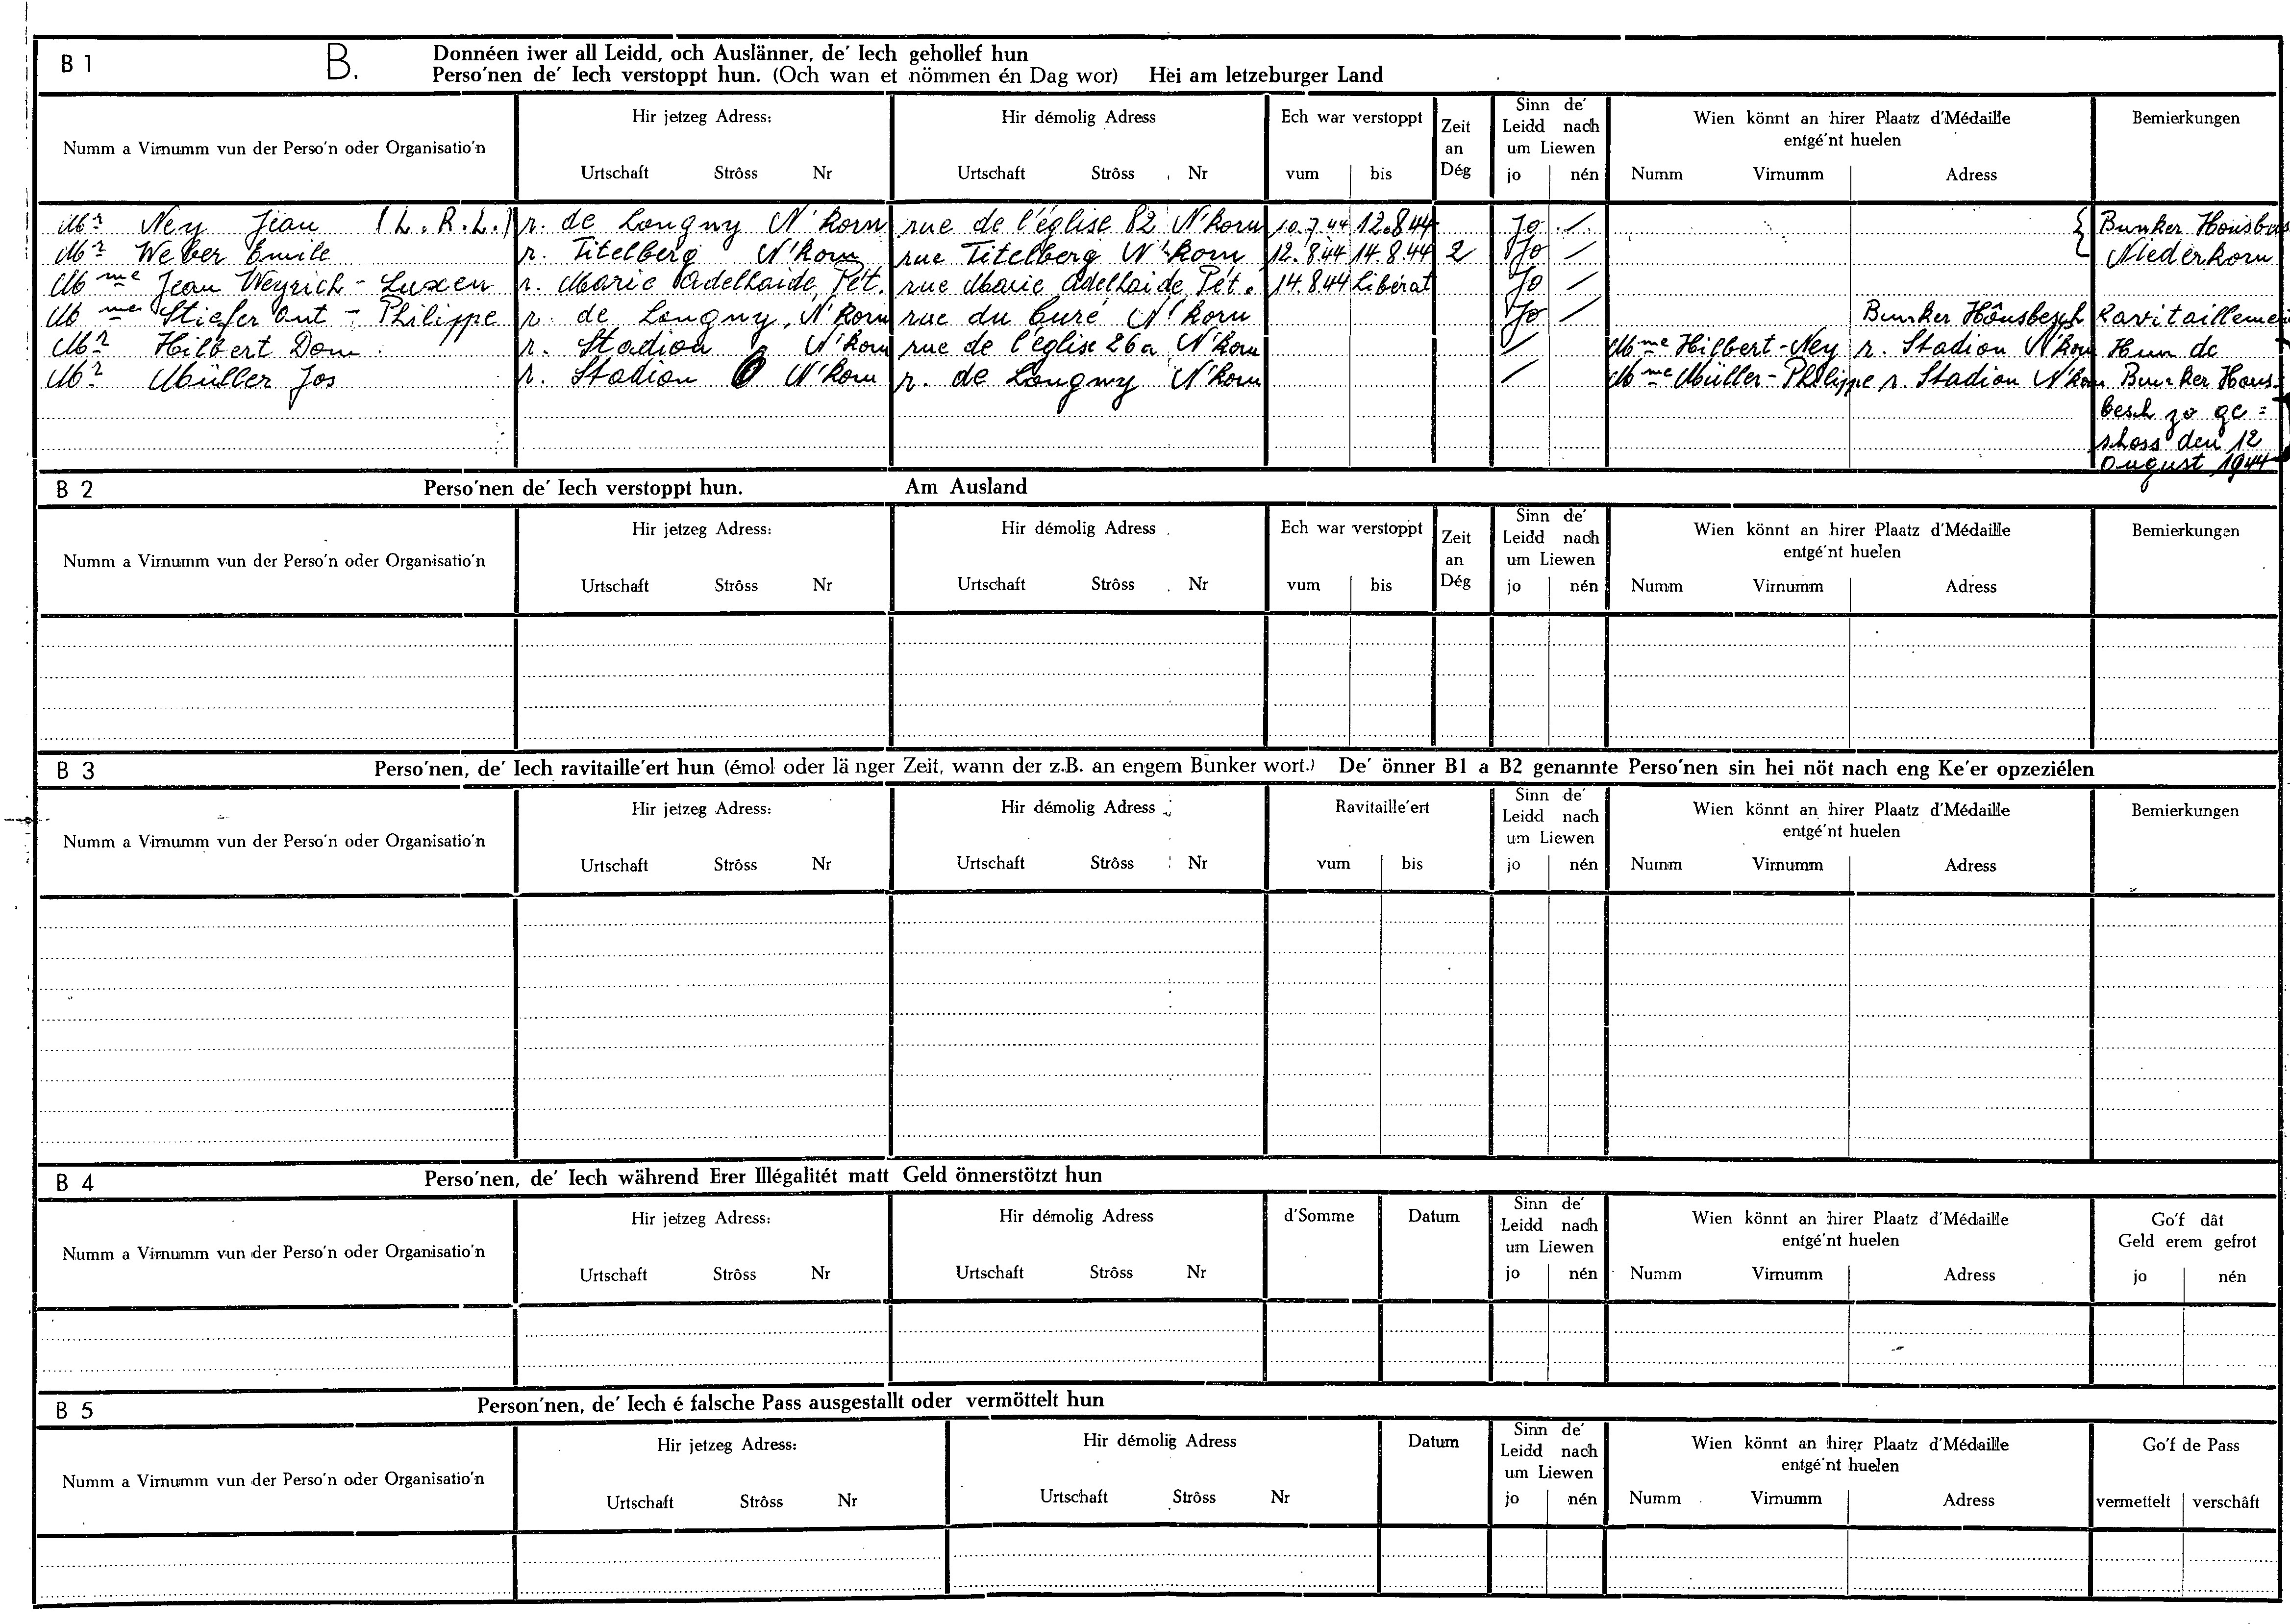 B 1 B. Donnéen iwer all Leidd, och Auslänner, de' Iech gehollef hun
Perso'nen de' Iech verstoppt hun. (Och wan et nömmen én Dag wor) Hei am letzeburger Land
Numm a Virnumm vun der Perso'n oder Organisatio'n
Hir jetzeg Adress:
Urtschaft Strôss Nr
Hir démolig Adress
Urtschaft Strôss Nr
Ech war verstoppt
vum bis
Zeit
an
Dég
Sinn de'
Leidd nach
um Liewen
jo nén
Wien könnt an hirer Plaatz d'Médaille
entgé'nt huelen
Numm Virnumm Adress
Bemierkungen
Mr Ney Jean (L.R.L.) r. de Longwy N'korn rue de l'église 82 N'korn 10.7.44 12.8.44 Jo / Bunker Housbus
Mr Weber Emile r. Titelberg N'korn rue Titelberg N'korn 12.8.44 14.8.44 2 Jo / Niederkorn
Mme Jean Weyrich - Luxen r. Marie Adelhaide Pét. rue Marie Adelhaide Pét. 14.8.44 Libérat Jo /
Mme Stiefer Ant - Philippe r. de Longwy, N'korn rue du Curé N'korn Jo / Bunker Hôusbesch Ravitaillement
Mr Hilbert Dom. r. Stadion N'korn rue de l'église 26a N'korn / Mme Hilbert-Ney r. Stadion N'korn Hun de
Mr Müller Jos r. Stadion N'korn r. de Longwy N'korn / Mme Müller-Philippe r. Stadion N'korn Bunker Hous-
besch zo ge=
shoss den 12
August 1944
B 2 Perso'nen de' Iech verstoppt hun. Am Ausland
Numm a Virnumm vun der Perso'n oder Organisatio'n
Hir jetzeg Adress:
Urtschaft Strôss Nr
Hir démolig Adress
Urtschaft Strôss Nr
Ech war verstoppt
vum bis
Zeit
an
Dég
Sinn de'
Leidd nach
um Liewen
jo nén
Wien könnt an hirer Plaatz d'Médaille
entgé'nt huelen
Numm Virnumm Adress
Bemierkungen
B 3 Perso'nen, de' Iech ravitaille'ert hun (émol oder länger Zeit, wann der z.B. an engem Bunker wort.) De' önner B1 a B2 genannte Perso'nen sin hei nöt nach eng Ke'er opzeziélen
Numm a Virnumm vun der Perso'n oder Organisatio'n
Hir jetzeg Adress:
Urtschaft Strôss Nr
Hir démolig Adress
Urtschaft Strôss Nr
Ravitaille'ert
vum bis
Sinn de'
Leidd nach
um Liewen
jo nén
Wien könnt an hirer Plaatz d'Médaille
entgé'nt huelen
Numm Virnumm Adress
Bemierkungen
B 4 Perso'nen, de' Iech während Erer Illégalitét matt Geld önnerstötzt hun
Numm a Virnumm vun der Perso'n oder Organisatio'n
Hir jetzeg Adress:
Urtschaft Strôss Nr
Hir démolig Adress
Urtschaft Strôss Nr
d'Somme
Datum
Sinn de'
Leidd nach
um Liewen
jo nén
Wien könnt an hirer Plaatz d'Médaille
entgé'nt huelen
Numm Virnumm Adress
Go'f dât
Geld erem gefrot
jo nén
B 5 Person'nen, de' Iech é falsche Pass ausgestallt oder vermöttelt hun
Numm a Virnumm vun der Perso'n oder Organisatio'n
Hir jetzeg Adress:
Urtschaft Strôss Nr
Hir démolig Adress
Urtschaft Strôss Nr
Datum
Sinn de'
Leidd nach
um Liewen
jo nén
Wien könnt an hirer Plaatz d'Médaille
entgé'nt huelen
Numm Virnumm Adress
Go'f de Pass
vermettelt verschâft